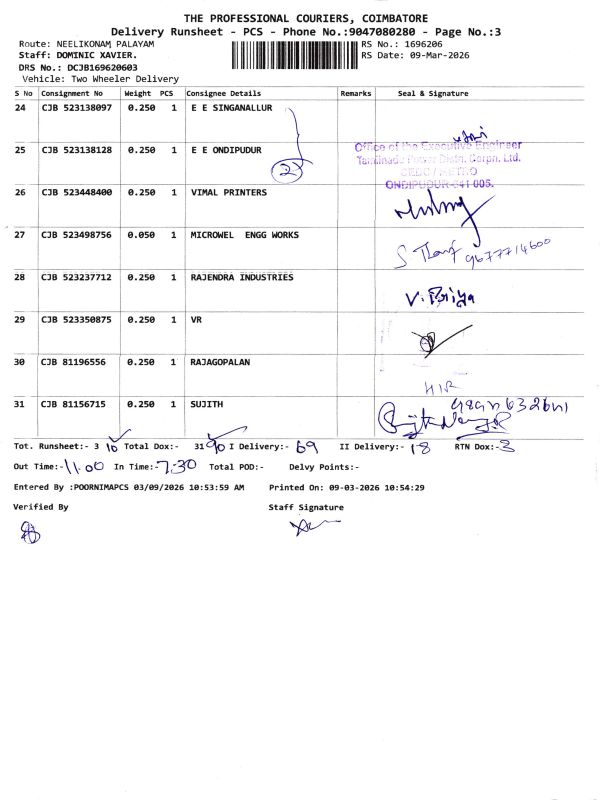 THE PROFESSIONAL COURIERS, COIMBATORE
Delivery Runsheet - PCS - Phone No.:9047080280 - Page No.:3
Route: NEELIKONAM PALAYAM RS No.: 1696206
Staff: DOMINIC XAVIER. RS Date: 09-Mar-2026
DRS No.: DCJB169620603
Vehicle: Two Wheeler Delivery
S No Consignment No Weight PCS Consignee Details Remarks Seal & Signature
24 CJB 523138097 0.250 1 E E SINGANALLUR
25 CJB 523138128 0.250 1 E E ONDIPUDUR
2
Office of the Executive Engineer
Tamilnadu Power Distn. Corpn. Ltd.
CEDC / METRO
ONDIPUDUR-641 005.
26 CJB 523448400 0.250 1 VIMAL PRINTERS
27 CJB 523498756 0.050 1 MICROWEL ENGG WORKS
9677714600
28 CJB 523237712 0.250 1 RAJENDRA INDUSTRIES
V.
29 CJB 523350875 0.250 1 VR
30 CJB 81196556 0.250 1 RAJAGOPALAN
31 CJB 81156715 0.250 1 SUJITH
Tot. Runsheet:- 3 10 Total Dox:- 31 90 I Delivery:- 69 II Delivery:- 18 RTN Dox:- 3
Out Time:- 11.00 In Time:- 7.30 Total POD:- Delvy Points:-
Entered By :POORNIMAPCS 03/09/2026 10:53:59 AM Printed On: 09-03-2026 10:54:29
Verified By Staff Signature